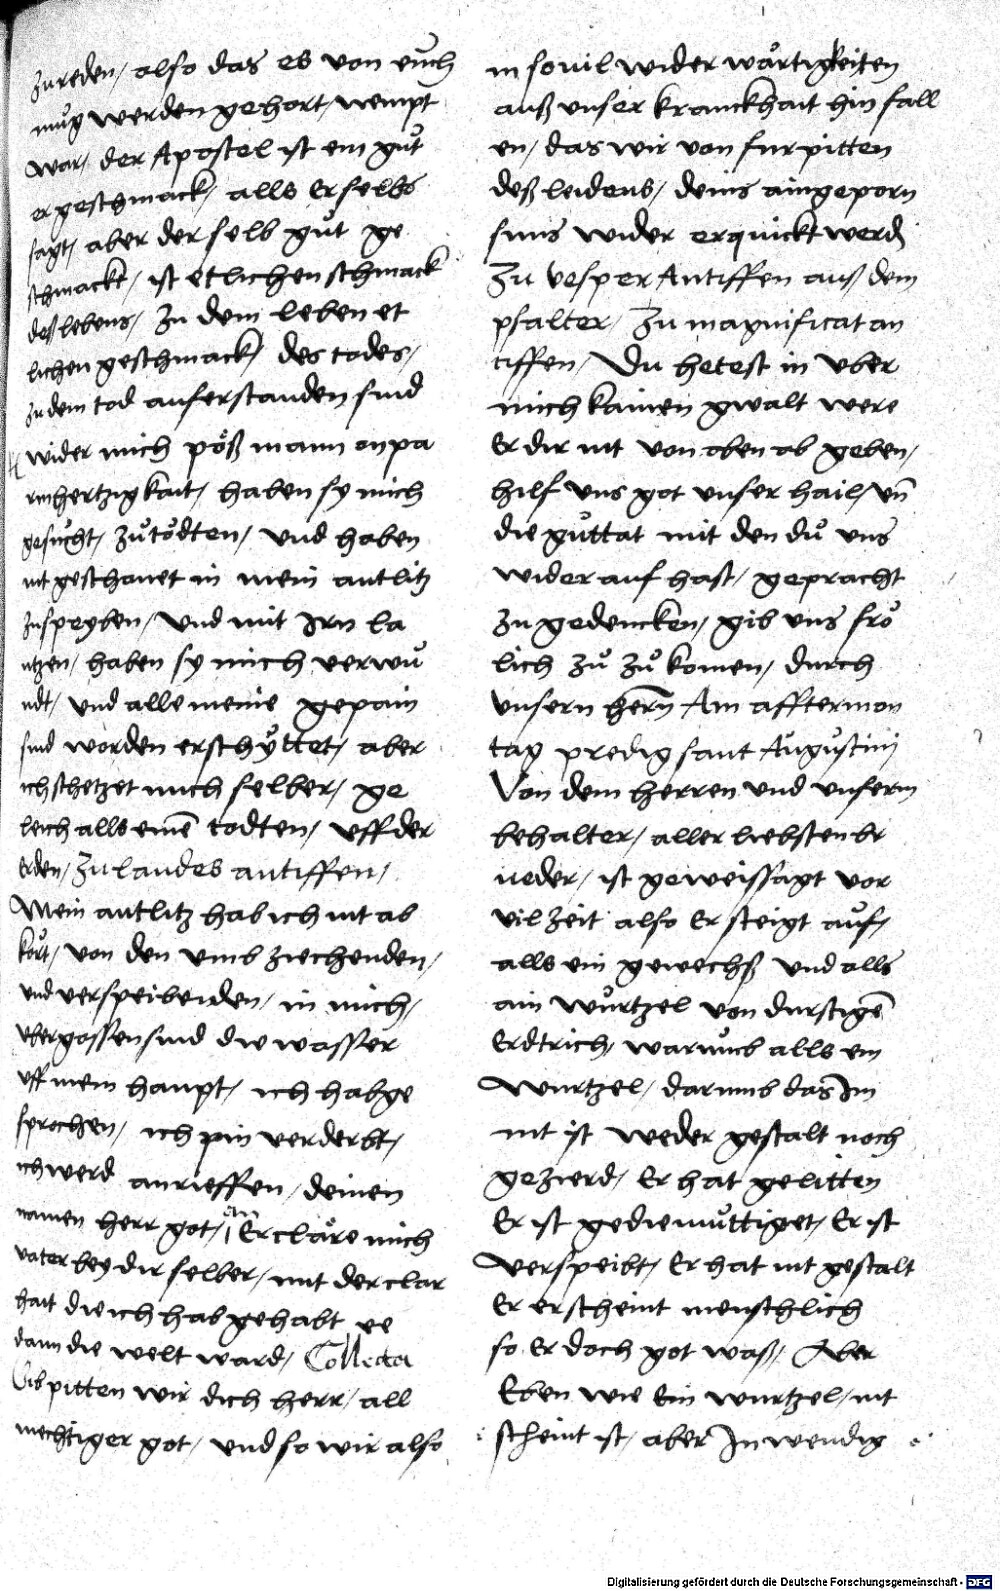 zu reden / also das es von euch
mug werden gehort / wempt
war / der Apostel ist ein gůt
er geschmack / alls Er selbs
sagt / aber der selb gůt ge
schmackt / ist etlichen schmack
deß lebens / Zu dem leben et
lichen geschmack / des todes /
zu dem tod aufferstanden sind
wider mich pöß mann on pa
rmhertzigkait / haben sy mich
gesůcht / zůtödten / und haben
nit geschonet in mein antlitz
zuspeyben / Und mit Irn la
ntzen / haben sy mich verwů
ndt / und alle meine gepain
sind worden erschyttet / aber
ich schetzet mich selber / ge
leich alls einē todten / uff der
Erden / Zu laudes antiffen /
Mein antlitz hab ich nit ab
kört / von den umb ziechenden /
und verspeibenden / in mich /
ubergossen sind die wasser
uff mein haupt / ich hab ge
sprochen / ich pin verderbt /
ich werd anrieffen / deinen
namen herr got / Ercläre mich
vater bey dir selber / mit der clar
hait die ich hab gehabt ee
dann die welt ward / Collecta
Uns pitten wir dich herr / all
mechtiger got / und so wir also
in souil wider wärtigkeiten
auß unser kranckhait hin fall
en / das wir von furpitten
deß leidens / deins aingeporn
suns wider erquickt werdn
Zu vesper Antiffen auß dem
psalter / Zu magnificat an
tiffen / Du hetest in uber
mich kainen gwalt were
Er dir nit von oben ob geben /
hilf uns got unser hail / un̄
die gůttat mit den dů uns
wider auf hast / gepracht
zu gedencken / gib uns frö
lich zů zů komen / durch
unsern herrn̄ Am afftermon
tag predig sant Augustini
Von dem herren und unserm
behalter / aller liebsten br
ueder / ist geweissagt vor
vil zeit also Er steigt auf /
alls ein gewechß und alls
ain wůrtzel von durstigē
Erdtrich / warumb alls ein
wurtzel / darumb das Im
nit ist weder gestalt noch
gezierd / Er hat gelitten
Er ist gediemůttiget / Er ist
verspeibt / Er hat nit gestalt
Er erscheint menschlich
so Er doch got waß / Aber
Eben wie Ein wurtzel / nit
scheint ist / aber Inwendig
Digitalisierung gefördert durch die Deutsche Forschungsgemeinschaft - DFG